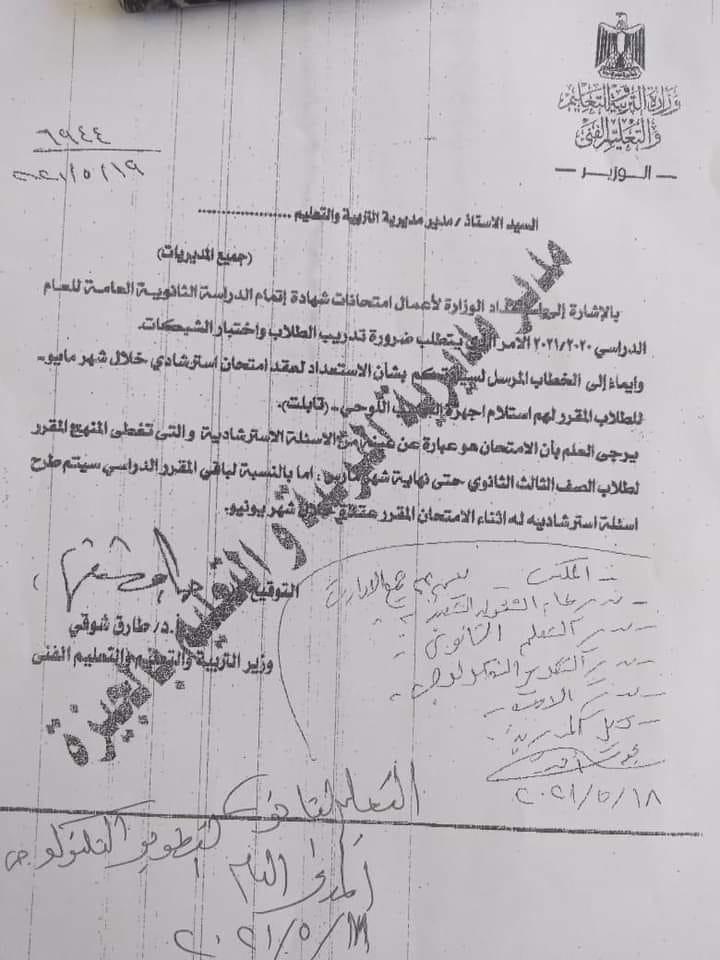 وزارة التربية والتعليم
والتعليم الفنى
— الوزير —
٦٩٤٤
٢٠٢١/٥/١٩
السيد الاستاذ / مدير مديرية التربية والتعليم ....................
(جميع المديريات)
بالإشارة إلى استعداد الوزارة لأعمال امتحانات شهادة إتمام الدراسة الثانوية العامة للعام
الدراسي ٢٠٢١/٢٠٢٠ الأمر الذي يتطلب ضرورة تدريب الطلاب واختبار الشبكات.
وايماء إلى الخطاب المرسل لسيادتكم بشأن الاستعداد لعقد امتحان استرشادي خلال شهر مايو-
للطلاب المقرر لهم استلام اجهزة اللوحي- (قابلت).
يرجى العلم بأن الامتحان هو عبارة عن عينة من الاسئلة الاسترشادية والتى تغطى المنهج المقرر
لطلاب الصف الثالث الثانوي حتى نهاية شهر مارس، اما بالنسبة لباقي المقرر الدراسي سيتم طرح
اسئلة استرشاديه له اثناء الامتحان المقرر عقده خلال شهر يونيو.
التوقيع
أ.د/ طارق شوقي
وزير التربية والتعليم والتعليم الفنى
مديرية التربية و التعليم بالجيزة
- المكتب
- مدير التعليم الثانوى
- مدير التطوير التكنولوجى
٢٠٢١/٥/١٨
التعليم الثانوى
التطوير التكنولوجى
٢٠٢١/٥/